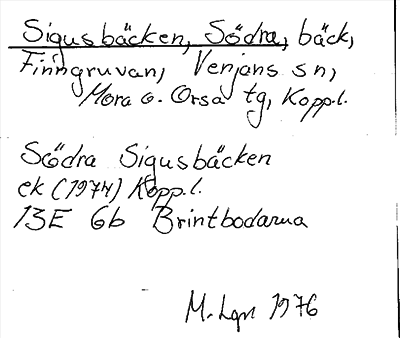 Sigusbäcken, Södra, bäck,
Finngruvan, Venjans sn,
Mora o. Orsa tg, Kopp.l.
Södra Sigusbäcken
ek (1974) Kopp.l.
13E 6b Brintbodarna
M. Lgn 1976